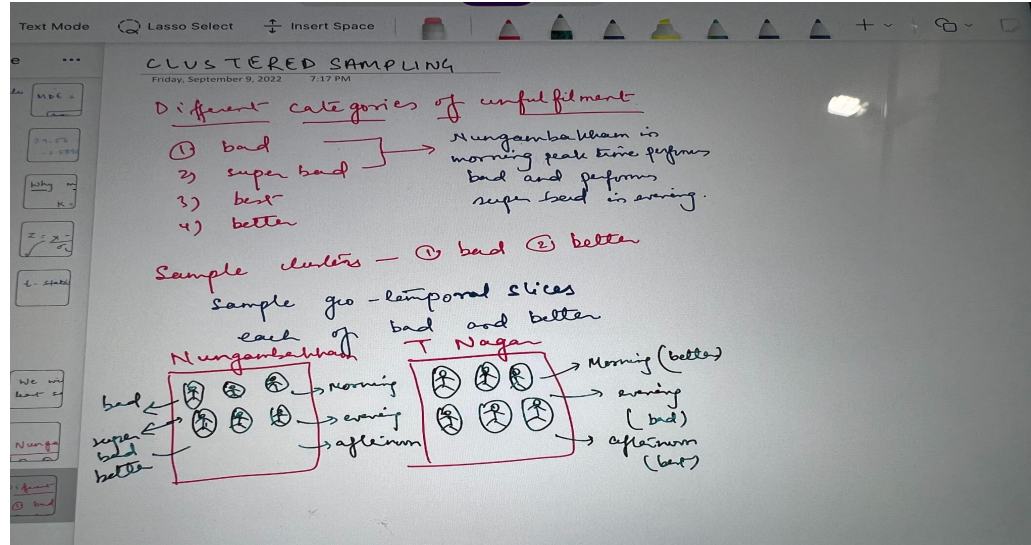 Text Mode Lasso Select Insert Space
CLUSTERED SAMPLING
Friday, September 9, 2022 7:17 PM
Different categories of unfulfilment
① bad
2) super bad
3) best
4) better
Nungambakham in
morning peak time performs
bad and performs
super bad in evening.
Sample clusters — ① bad ② better
Sample geo-temporal slices
each of bad and better
Nungambakham
T Nagar
bad
super
bad
better
Morning
evening
afternoon
Morning (better)
evening
(bad)
afternoon
(best)
MDE =
Why
K =
We
Nunga